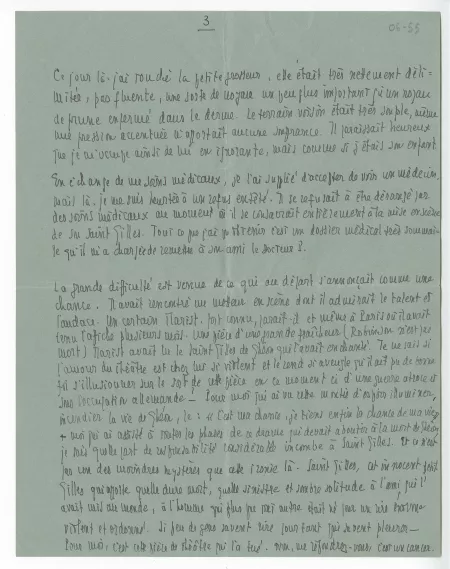 3
06-55
Ce jour là j'ai touché la petite grosseur, elle était très nettement déli=
mitée, pas fluente, une sorte de noyau un peu plus important qu'un noyau
de prune enfermé dans le derme. Le terrain voisin était très souple, même
une pression accentuée n'apportait aucune souffrance. Il paraissait heureux
que je m'occupe ainsi de lui en ignorante, mais comme si j'étais son enfant
En échange de mes soins médicaux, je l'ai supplié d'accepter de voir un médecin,
mais là je me suis heurtée à un refus entêté. Il se refusait à être dérangé par
des soins médicaux au moment où il se consacrait entièrement à la mise en scène
de son Saint Gilles. Tout ce que j'ai pu obtenir c'est un dossier médical très sommai=
re qu'il m'a chargée de remettre à son ami le docteur ?.
La grande difficulté est venue de ce qui au départ s'annonçait comme une
chance. Il avait rencontré un metteur en scène dont il admirait le talent et
l'audace. Un certain fort connu, paraît-il et même à Paris où il avait
tenu l'affiche plusieurs mois. Une pièce d'une grande fraîcheur (Robinson n'est pas
mort) avait lu le Saint Gilles de qui l'avait enchanté. Je ne sais si
l'amour du théâtre est chez lui si violent et le rend si aveugle qu'il ait pu de bonne
foi s'illusionner sur le sort de cette pièce en ce moment ci d'une guerre atroce et
sous l'occupation allemande — Pour moi qui ai vu cette moitié d'espoir illuminer,
incendier la vie de le : "C'est ma chance, je tiens enfin la chance de ma vie"
et moi qui ai assisté à toutes les phases de ce drame qui devait aboutir à la mort de
je sais quelle part de responsabilité considérable incombe à Saint Gilles. Et ce n'est
pas un des moindres mystères que cette ironie là. Saint Gilles, cet innocent petit
Gilles qui apporte quelle dure mort, quelle sinistre et sombre solitude à l'ami qui l'
avait mis au monde, à l'homme qui plus que tout autre était né pour un rire
violent et ordonné. Si peu de gens savent rire pour tant qui savent pleurer —
Pour moi, c'est cette pièce de théâtre qui l'a tué. Non, me répondrez-vous c'est un cancer.